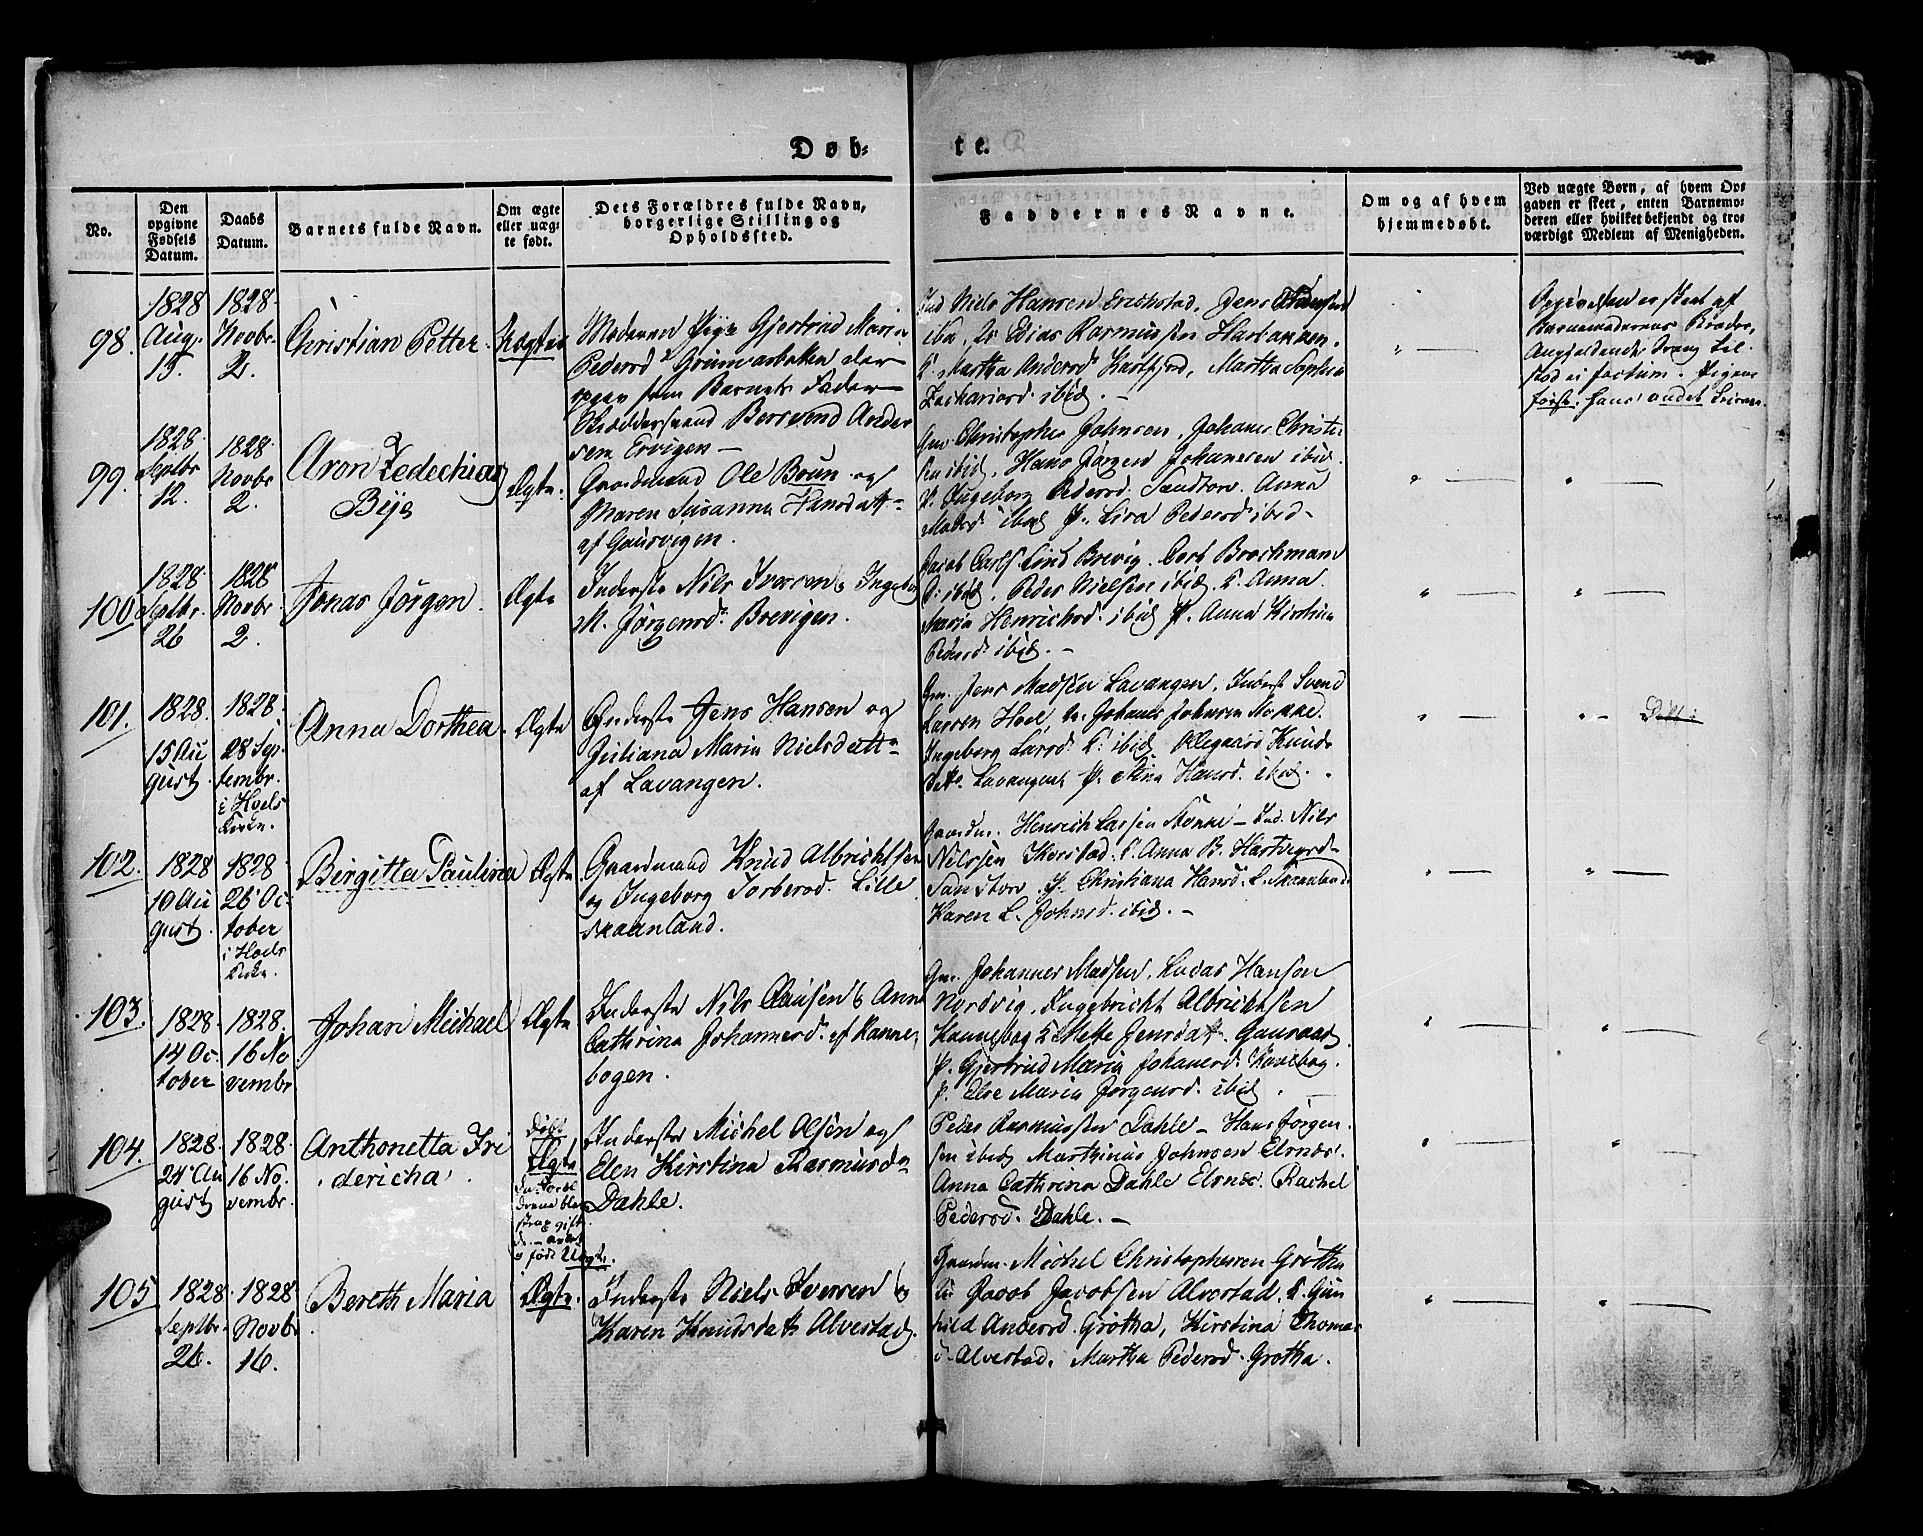 Døb-
te.
No.
Den opgivne Fødsels Datum.
Daabs Datum.
Barnets fulde Navn.
Om ægte eller uægte født.
Dets Forældres fulde Navn, borgerlige Stilling og Opholdssted.
Faddernes Navne.
Om og af hvem hjemmedøbt.
Ved uægte Børn, af hvem Opgaven er skeet, enten Barnemoderen eller hvilket bekjendt og troværdigt Medlem af Menigheden.
98.
1828
Aug.
15.
1828
Novbr
2.
Christian Petter
Uægte
Moderen Pige Gjertrud Maria
Pedersd
som Barnets Fader
Anders
sen Ervigen
Niels Hansen
Elias Rasmussen
Martha Andersd. Kastfjord, Martha Sophia
Zachariasd ibid. -
Opgivelsen er skeet af
Barnemoderens Broder,
99.
1828
Septbr
12.
1828
Novbr
2.
Aron Zedechias
Bye
Ægte.
Gaardmand Ole Bruun og
Maren Susanna Hansdatt
af Gausvigen.
Christopher Johnsen, Johanes Christen
sen ibid, Hans Jørgen Johannesen ibid.
P. Ingeborg Pedersd. Sandtorv. Anna
Madsd ibid P. Lisa Pedersd ibid -
100.
1828
Septbr.
26
1828
Novbr
2.
Jonas Jørgen.
Ægte
Inderste Nils Iversen & Ingeborg
M. Jørgensd. Brevigen.
Jacob Carls. Lind Brevig. Cort Brochmann
ibid, Peder Nielsen ibid. K. Anna
Maria Henrichsd. ibid P. Anna Kirstina
Pedersd. ibid. -
101.
1828.
15 Au
gust
1828.
28 Sep
tembr.
i Hols
Kirke.
Anna Dorthea
Ægte
Inderste Jens Hansen og
Juliana Maria Nielsdatt
af Lavangen.
Gm. Jens Madsen Lavangen, Inderst Svend
Larsen Hoel Johanes Johnsen
Ingeborg Larsd. K. ibid. Ollegaard Knuds
datt. Lavangen P. Stina Hansd. ibid.
102.
1828
10 Au
gust.
1828
26 Oc
tober
i Hols
Kirke.
Birgitta Paulina
Ægte
Gaardmand Knud Albrichtsen
og Ingeborg Torbersd. Lille
skaanland.
Gaardm. Henrich Larsen - Ind. Nils
Nilssen K. Anna B. Hartvigsd
Sandtorv. P. Christiana Hansd. L. Skaanland.
Karen L. Johnsd. ibid. -
103.
1828.
14 Oc
tober
1828.
16 No
vembr
Johan Michael
Ægte
Inderste Nils Clausen & Anna
Cathrina Johannesd. af Kanne
bogen.
Gm. Johannes Madsen, Lucas Hansen
Nordvig. Ingebricht Albrichtsen
Kannebog K Mette Jensdatt. Gausaas
P. Gjertrud Maria Johanesd. Kanebog.
P. Else Maria Jørgensd. ibid.
104.
1828.
24 Au
gust
1828.
16 No
vembr.
Anthonetta Fri
dericha.
Døbt
Ægte
Uægte.
Inderste Michel Olsen og
Elen Kirstina Rasmusd
Dahle.
Peder Rasmussen Dahle - Hans Jørgen
sen ibid Marthinus Johnsen Elsnes.
Anna Cathrina Dahle Elsnes. Rachel
Pedersd. Dahle. -
105
1828.
Septbr.
26.
1828
Novbr
16.
Bereth Maria
Ægte.
Inderste Niels Iversen &
Karen Knudsdatt Alvestad.
Gaardm. Michel Christophersen Grøtha
Jacob Jacobsen Alvestad, K. Gun
hild Andersd. Grøtha, Kirstina Thomas
d. Alvestad, Martha Pedersd. Grøtha.